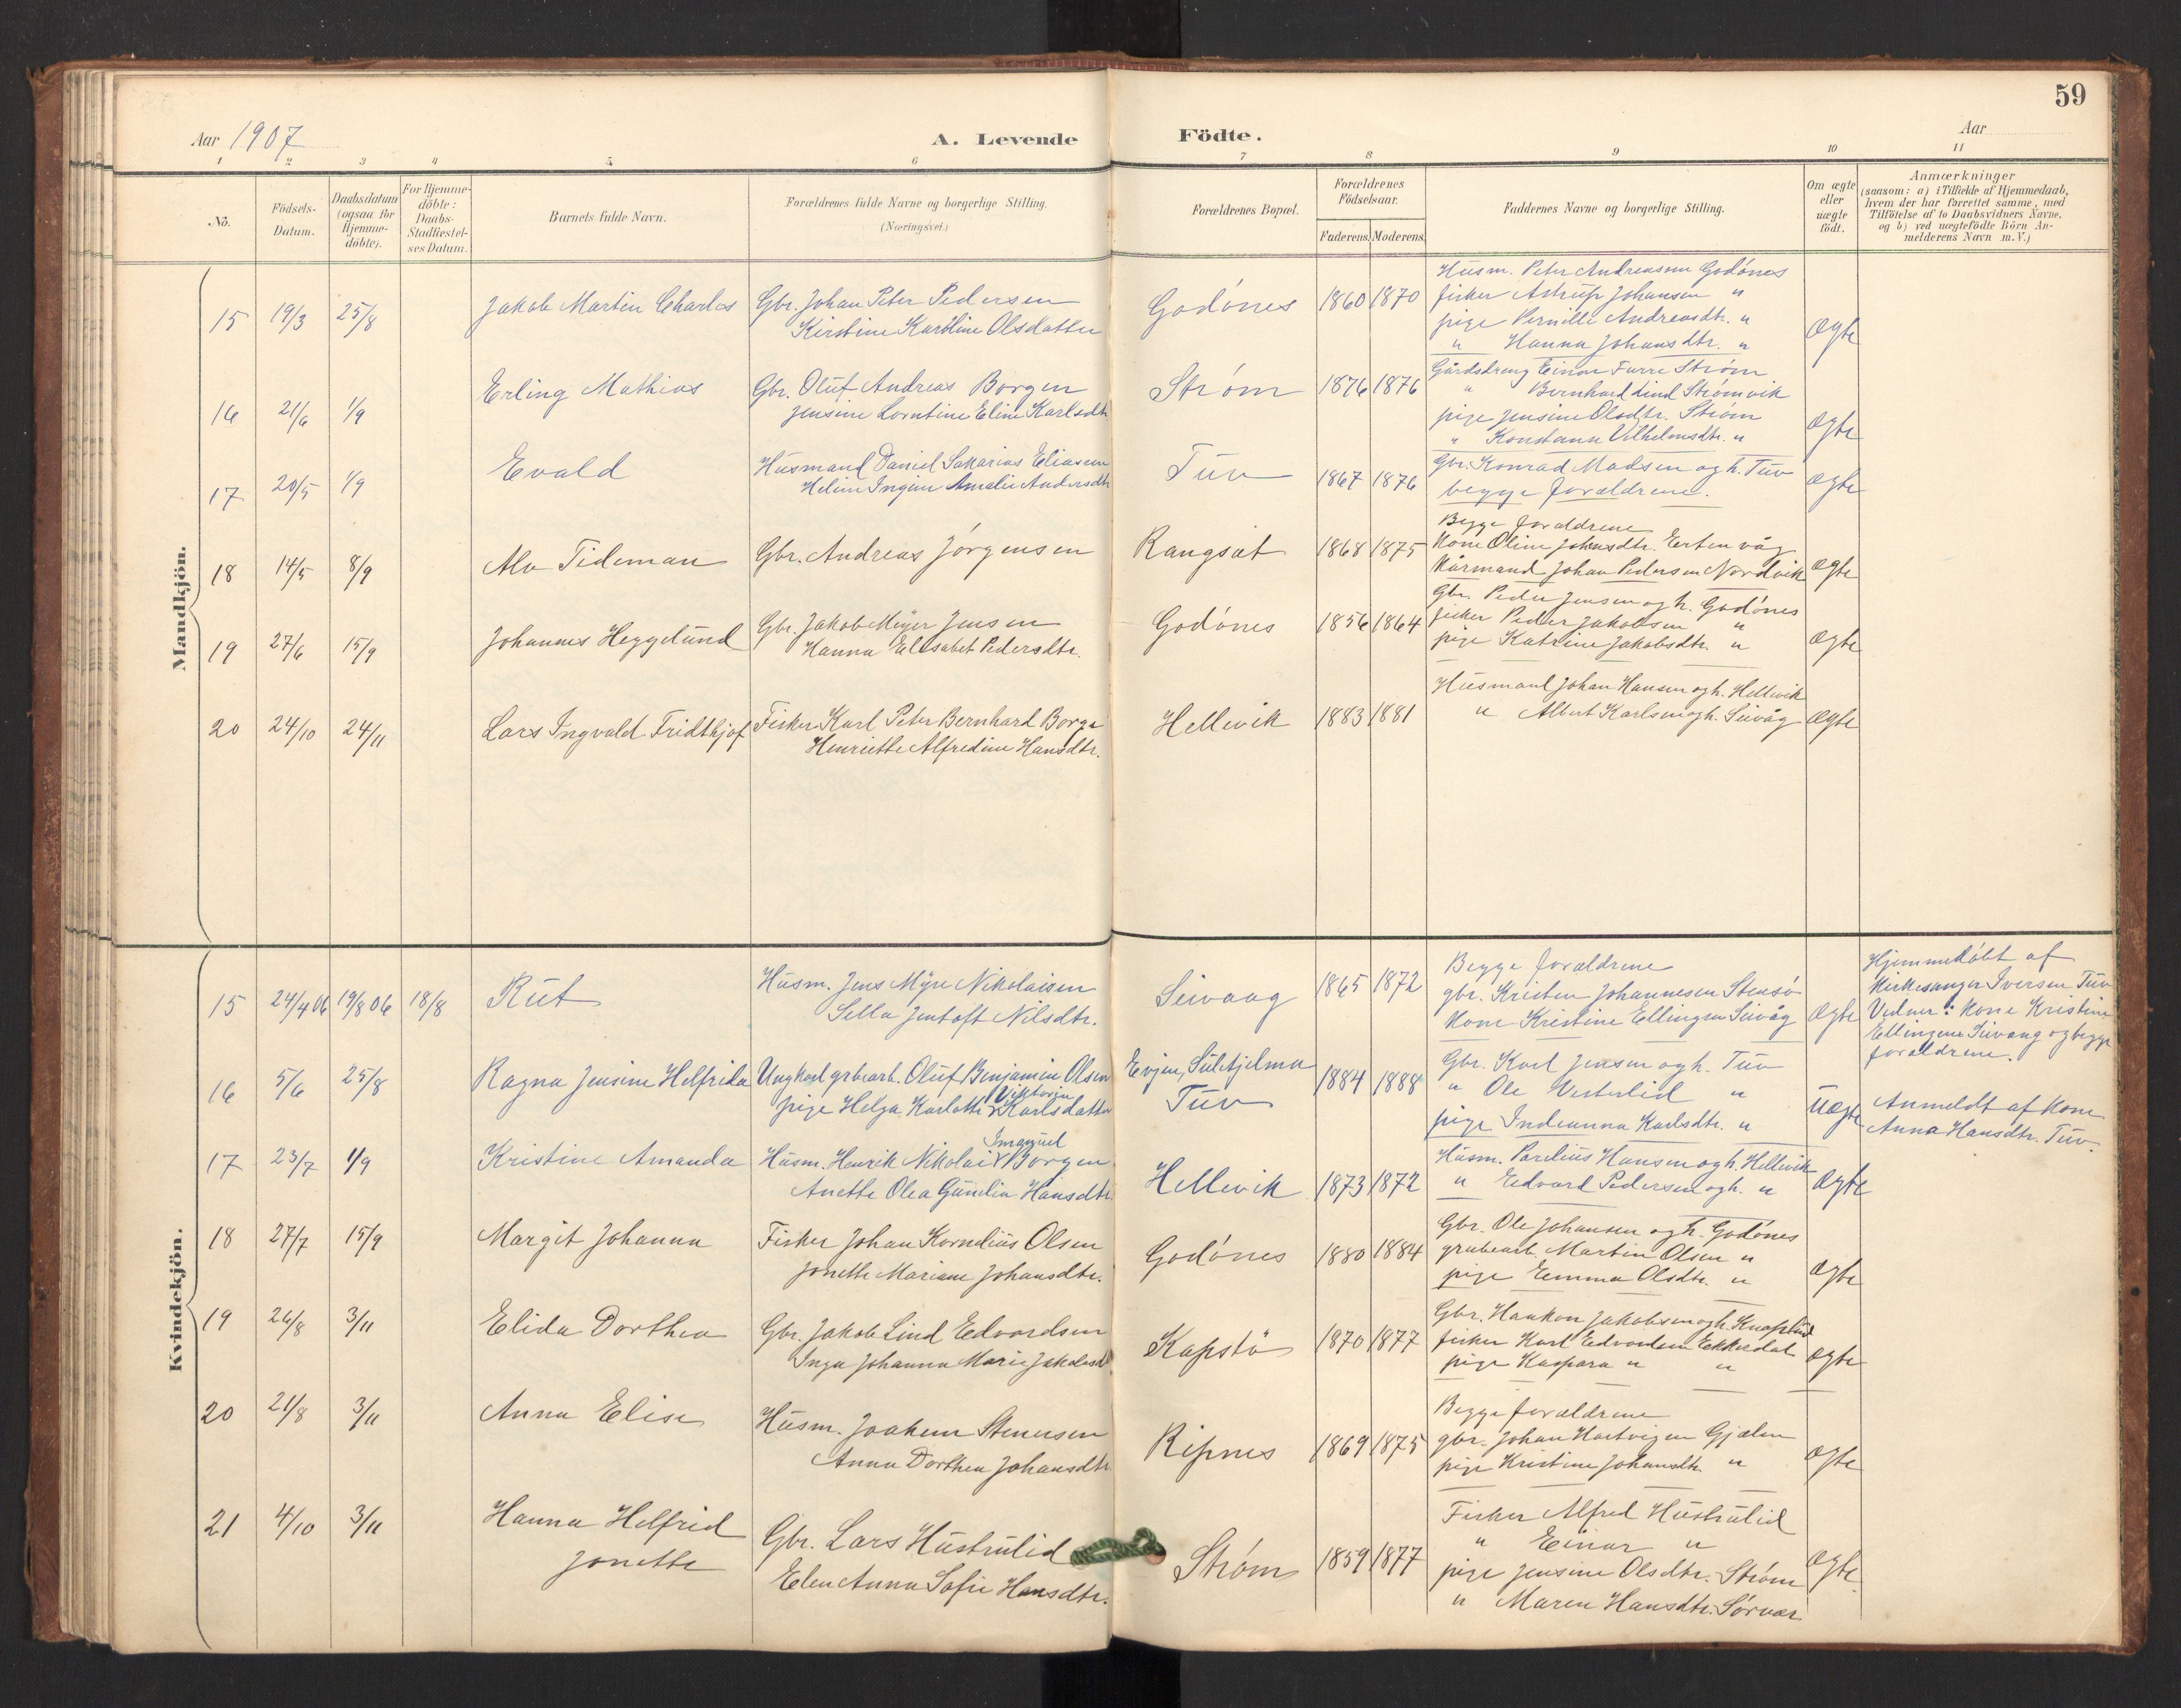 59
Aar 1907
A. Levende
Födte.
Aar
1 2 3 4 5 6 7 8 9 10 11
No.
Födsels-
Datum.
Daabsdatum
(ogsaa for
Hjemme-
döbte).
For Hjemme-
döbte:
Daabs-
Stadfæstel-
ses Datum.
Barnets fulde Navn.
Forældrenes fulde Navne og borgerlige Stilling.
(Næringsvei.)
Forældrenes Bopæl.
Forældrenes
Födselsaar.
Faderens. Moderens.
Faddernes Navne og borgerlige Stilling.
Om ægte
eller
uægte
födt.
Anmærkninger
(saasom: a) i Tilfælde af Hjemmedaab,
hvem der har forrettet samme, med
Tilföielse af to Daabsvidners Navne.
og b) ved uægtefödte Börn An-
melderens Navn m. V.)
Mandkjön.
15 19/3 25/8 Jakob Martin Charles
Gbr. Johan Peter Pedersen
Kirstine Karoline Olsdatter
Godönes 1860 1870
Husm. Peter Andreassen Godönes
fisker Astrup Johansen "
pige Pernille Andreasdtr. "
" Hanna Johansdtr. "
Ægte
16 21/6 1/9 Erling Mathias
Gbr. Oluf Andreas Borgen
Jensine Lorntine Eline Karlsdtr
Ström 1876 1876
Gårdsdreng Einar Furre Ström
" Bernhard Lind Strömvik
pige Jensine Olsdtr. Ström
" Konstanse Vilhelmsdtr. "
Ægte
17 20/5 1/9 Evald
Husmand Daniel Sakarias Eliassen
Heline Ingine Amalie Andersdtr
Tuv 1867 1876
Gbr. Konrad Madsen og h. Tuv
begge forældrene.
Ægte
18 14/5 8/9 Alv Tideman
Gbr. Andreas Jörgensen
Rangsæt 1868 1875
Begge forældrene
Kone Oline Johansdtr. Ertenvåg
Kårmand Johan Pedersen Nordvik
Ægte
19 27/6 15/9 Johannes Heggelund
Gbr. Jakob Meyer Jensen
Hanna Elisabet Pedersdtr.
Godönes 1856 1864
Gbr. Peder Jensen og h. Godönes
fisker Peder Jakobsen "
pige Katrine Jakobsdtr. "
Ægte
20 24/10 24/11 Lars Ingvald Fridthjof
Fisker Karl Peter Bernhard Borge
Henriette Alfredine Hansdtr.
Hellevik 1883 1881
Husmand Johan Hansen og h. Hellevik
" Albert Karlsen og h. Seivåg
Ægte
Kvindekjön.
15 24/4 06 19/8 06 18/8 Rut
Husm. Jens Myre Nikolaisen
Sella Jentoft Nilsdtr.
Seivaag 1865 1872
Begge forældrene
gbr. Kristen Johannesen Stensö
Kone Kristine Ellingsen Seivåg
Ægte
Hjemmedöbt af
Kirkesanger Iversen Tuv
Vidner: Kone Kristine
Ellingsen Seivaag og begge
forældrene.
16 5/6 25/8 Ragna Jensine Helfrida
Ungkarl grbearb. Oluf Benjamin Olsen
Viktoria
pige Helga Karlotte Karlsdatter
Evjen, Sulitjelma
Tuv
1884 1888
Gbr. Karl Jensen og h. Tuv
" Ole Vesterlid "
pige Indianna Karlsdtr. "
Uægte
Anmeldt af Kone
Anna Hansdtr. Tuv.
17 23/7 1/9 Kristine Amanda
Imanuel
Husm. Henrik Nikolai Borgen
Anette Olea Gunelia Hansdtr
Hellevik 1873 1872
Husm. Parelius Hansen og h. Hellevik
" Edvard Pedersen og h. "
Ægte
18 27/7 15/9 Margit Johanna
Fisker Johan Kornelius Olsen
Jonette Mariane Johansdtr.
Godönes 1880 1884
Gbr. Ole Johansen og h. Godönes
grubearb. Martin Olsen "
pige Emma Olsdtr. "
Ægte
19 26/8 3/11 Elida Dorthea
Gbr. Jakob Lind Edvardsen
Inga Johanna Marie Jakobsd
Kapstö 1870 1877
Gbr. Haakon Jakobsen og h. Knaplund
fisker Karl Edvardsen Ekkerdal
pige Kaspara " "
Ægte
20 21/8 3/11 Anna Elise
Husm. Joakim Stenersen
Anna Dorthea Johansdtr.
Ripnes 1869 1875
Begge forældrene
gbr. Johan Hartvigsen Gjælen
pige Kristine Johansdtr. "
Ægte
21 4/10 3/11 Hanna Helfrid
Jonette
Gbr. Lars Hustrulid
Elen Anna Sofie Hansdtr.
Ström 1859 1877
Fisker Alfred Hustrulid
" Einar "
pige Jensine Olsdtr. Ström
" Maren Hansdtr. Sörvær
Ægte.